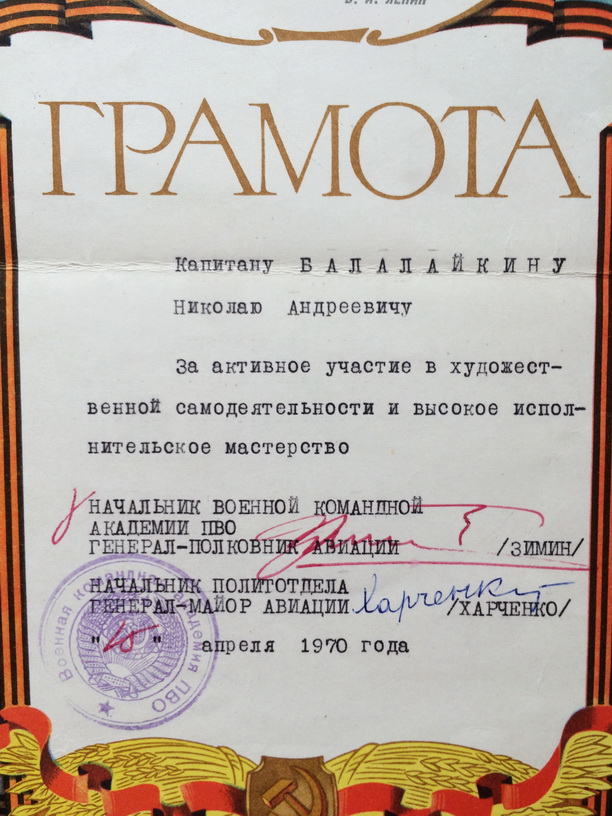 В. И. ЛЕНИН
ГРАМОТА
Капитану БАЛАЛАЙКИНУ
Николаю Андреевичу
За активное участие в художест-
венной самодеятельности и высокое испол-
нительское мастерство
НАЧАЛЬНИК ВОЕННОЙ КОМАНДНОЙ
АКАДЕМИИ ПВО
ГЕНЕРАЛ-ПОЛКОВНИК АВИАЦИИ /ЗИМИН/
НАЧАЛЬНИК ПОЛИТОТДЕЛА
ГЕНЕРАЛ-МАЙОР АВИАЦИИ Харченко /ХАРЧЕНКО/
" " апреля 1970 года
Военная командная академия ПВО